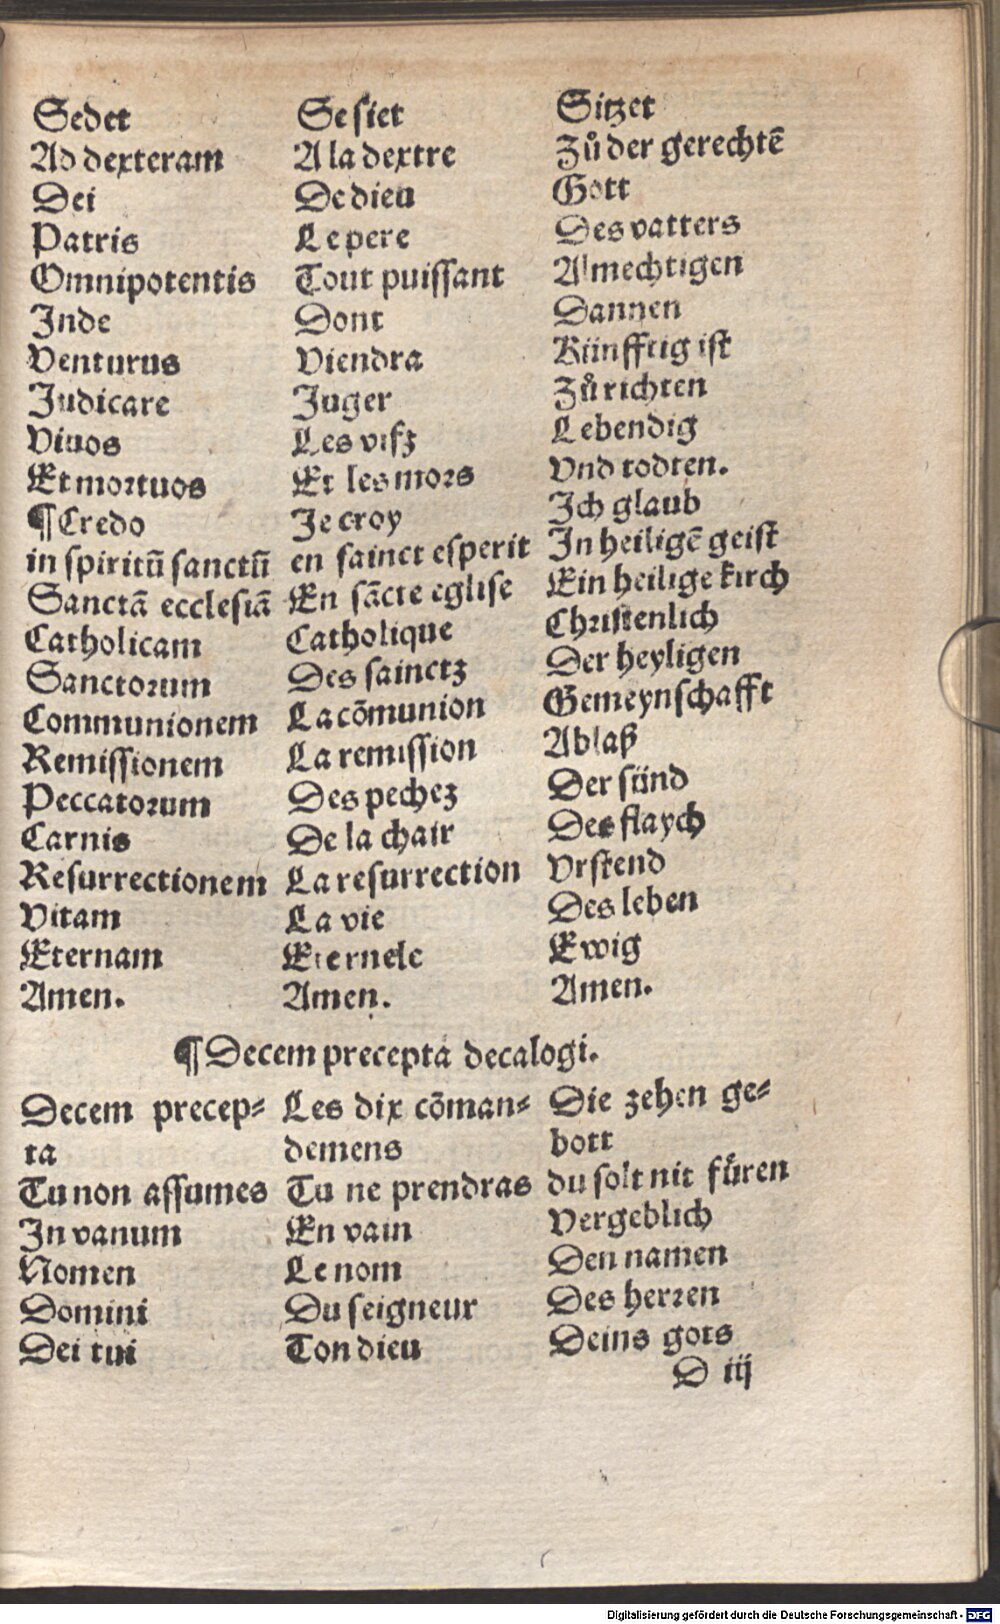 Sedet Se siet Sitzet
Ad dexteram A la dextre Zů der gerechtẽ
Dei De dieu Gott
Patris Le pere Des vatters
Omnipotentis Tout puissant Almechtigen
Inde Dont Dannen
Venturus Viendra Künfftig ist
Judicare Juger Zů richten
Viuos Les vifz Lebendig
Et mortuos Et les mors Vnd todten.
¶Credo Je croy Ich glaub
in spiritũ sanctũ en sainct esperit In heiligẽ geist
Sanctã ecclesiã En sãcte eglise Ein heilige kirch
Catholicam Catholique Christenlich
Sanctorum Des sainctz Der heyligen
Communionem La cõmunion Gemeynschafft
Remissionem La remission Ablaß
Peccatorum Des pechez Der sünd
Carnis De la chair Des flaych
Resurrectionem La resurrection Vrstend
Vitam La vie Des leben
Eternam Eternele Ewig
Amen. Amen. Amen.
¶Decem precepta decalogi.
Decem precep= Les dix cõman= Die zehen ge=
ta demens bott
Tu non assumes Tu ne prendras du solt nit fůren
In vanum En vain Vergeblich
Nomen Le nom Den namen
Domini Du seigneur Des herren
Dei tui Ton dieu Deins gots
D iij
Digitalisierung gefördert durch die Deutsche Forschungsgemeinschaft - DFG